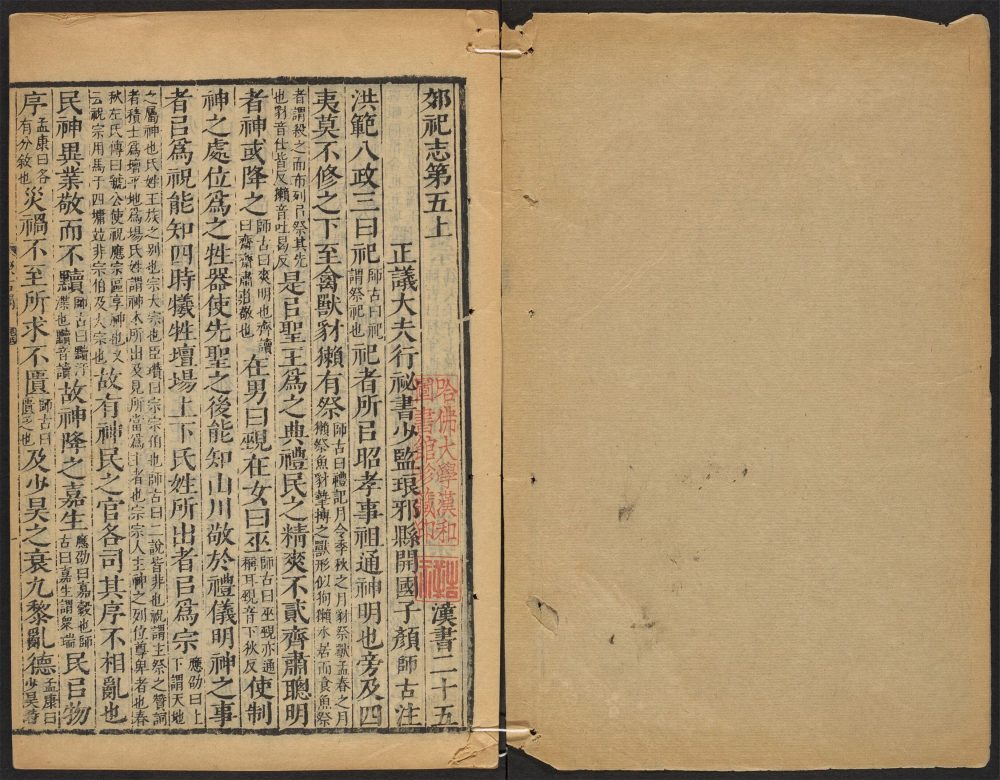 郊祀志第五上　漢書二十五
正議大夫行祕書少監琅邪縣開國子顏師古注
洪範八政三曰祀師古曰祀謂祭祀也祀者所㠯昭孝事祖通神明也旁及四
夷莫不修之下至禽獸豺獺有祭師古曰禮記月令季秋之月豺祭獸孟春之月獺祭魚豺摯搏之獸形似狗獺水居而食魚祭
者謂殺之而布列㠯祭其先也豺音仕皆反獺音吐曷反是㠯聖王爲之典禮民之精爽不貳齊肅聰明
者神或降之師古曰爽明也齊讀曰齋齋肅莊敬也在男曰覡在女曰巫師古曰巫覡亦通稱耳覡音下狄反使制
神之處位爲之牲器使先聖之後能知山川敬於禮儀明神之事
者㠯爲祝能知四時犧牲壇場上下氏姓所出者㠯爲宗應劭曰上下謂天地
之屬神也氏姓王族之別也宗大宗也臣瓚曰宗宗伯也師古曰二說皆非也祝謂主祭之贊詞
者積土爲壇平地爲場氏姓謂神本所出及見所當爲主者也宗宗人主神之列位尊卑者也春
秋左氏傳曰虢公使祝應宗區享神也又云祝宗用馬于四墉竝非宗伯及大宗也故有神民之官各司其序不相亂也
民神異業敬而不黷師古曰黷汙渫也黷音讀故神降之嘉生應劭曰嘉穀也師古曰嘉生謂衆瑞民㠯物
序孟康曰各有分敘也災禍不至所求不匱師古曰匱乏也及少昊之衰九黎亂德孟康曰少昊時
哈佛大學漢和
圖書館珍藏印